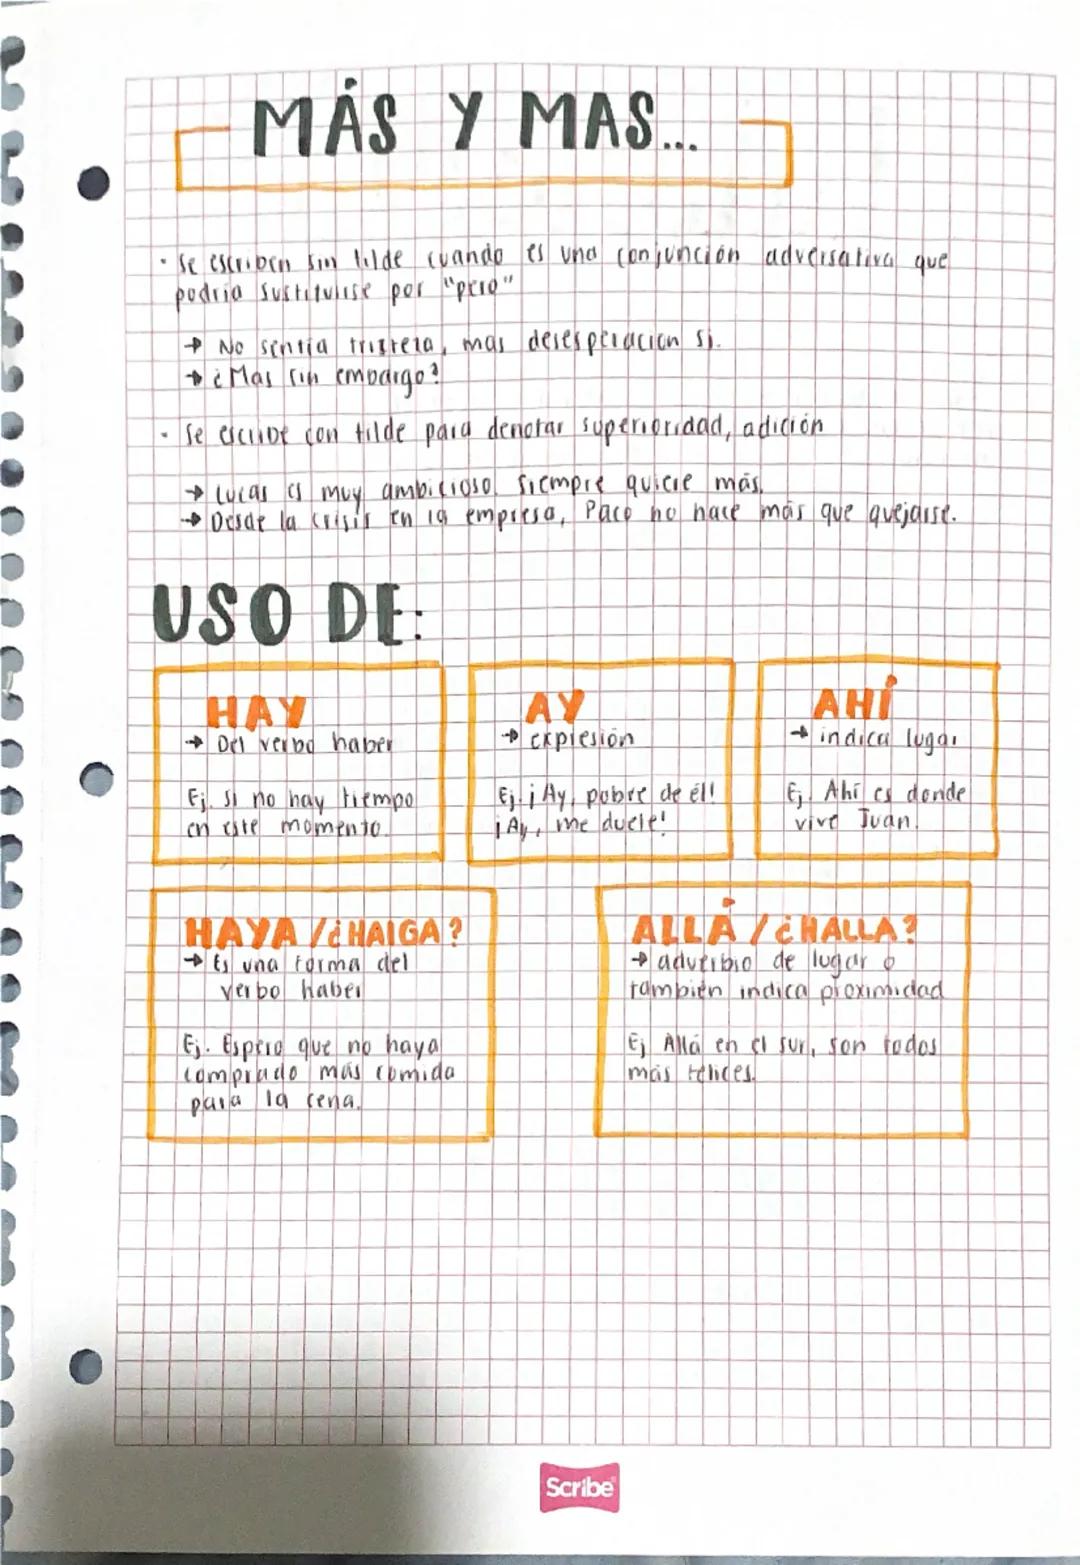 MÁS Y MAS...
· Se escriben sin tilde cuando es una conjunción adversativa que
podría sustituirse por "pero"
→ No sentía tristeza, mas desesperación sí.
→ ¿Mas sin embargo?
· Se escribe con tilde para denotar superioridad, adición
→ Lucas es muy ambicioso, siempre quiere más.
→ Desde la crisis en la empresa, Paco no hace más que quejarse.
USO DE:
HAY
→ Del verbo haber
Ej. Si no hay tiempo
en este momento.
AY
→ expresión
Ej. ¡Ay, pobre de él!
¡Ay, me duele!
AHÍ
→ indica lugar
Ej. Ahí es donde
vive Juan.
HAYA / ¿HAIGA?
→ Es una forma del
verbo haber
Ej. Espero que no haya
comprado más comida
para la cena.
ALLÁ / ¿HALLA?
→ adverbio de lugar o
también indica proximidad
Ej Allá en el sur, son todos
más felices.
Scribe